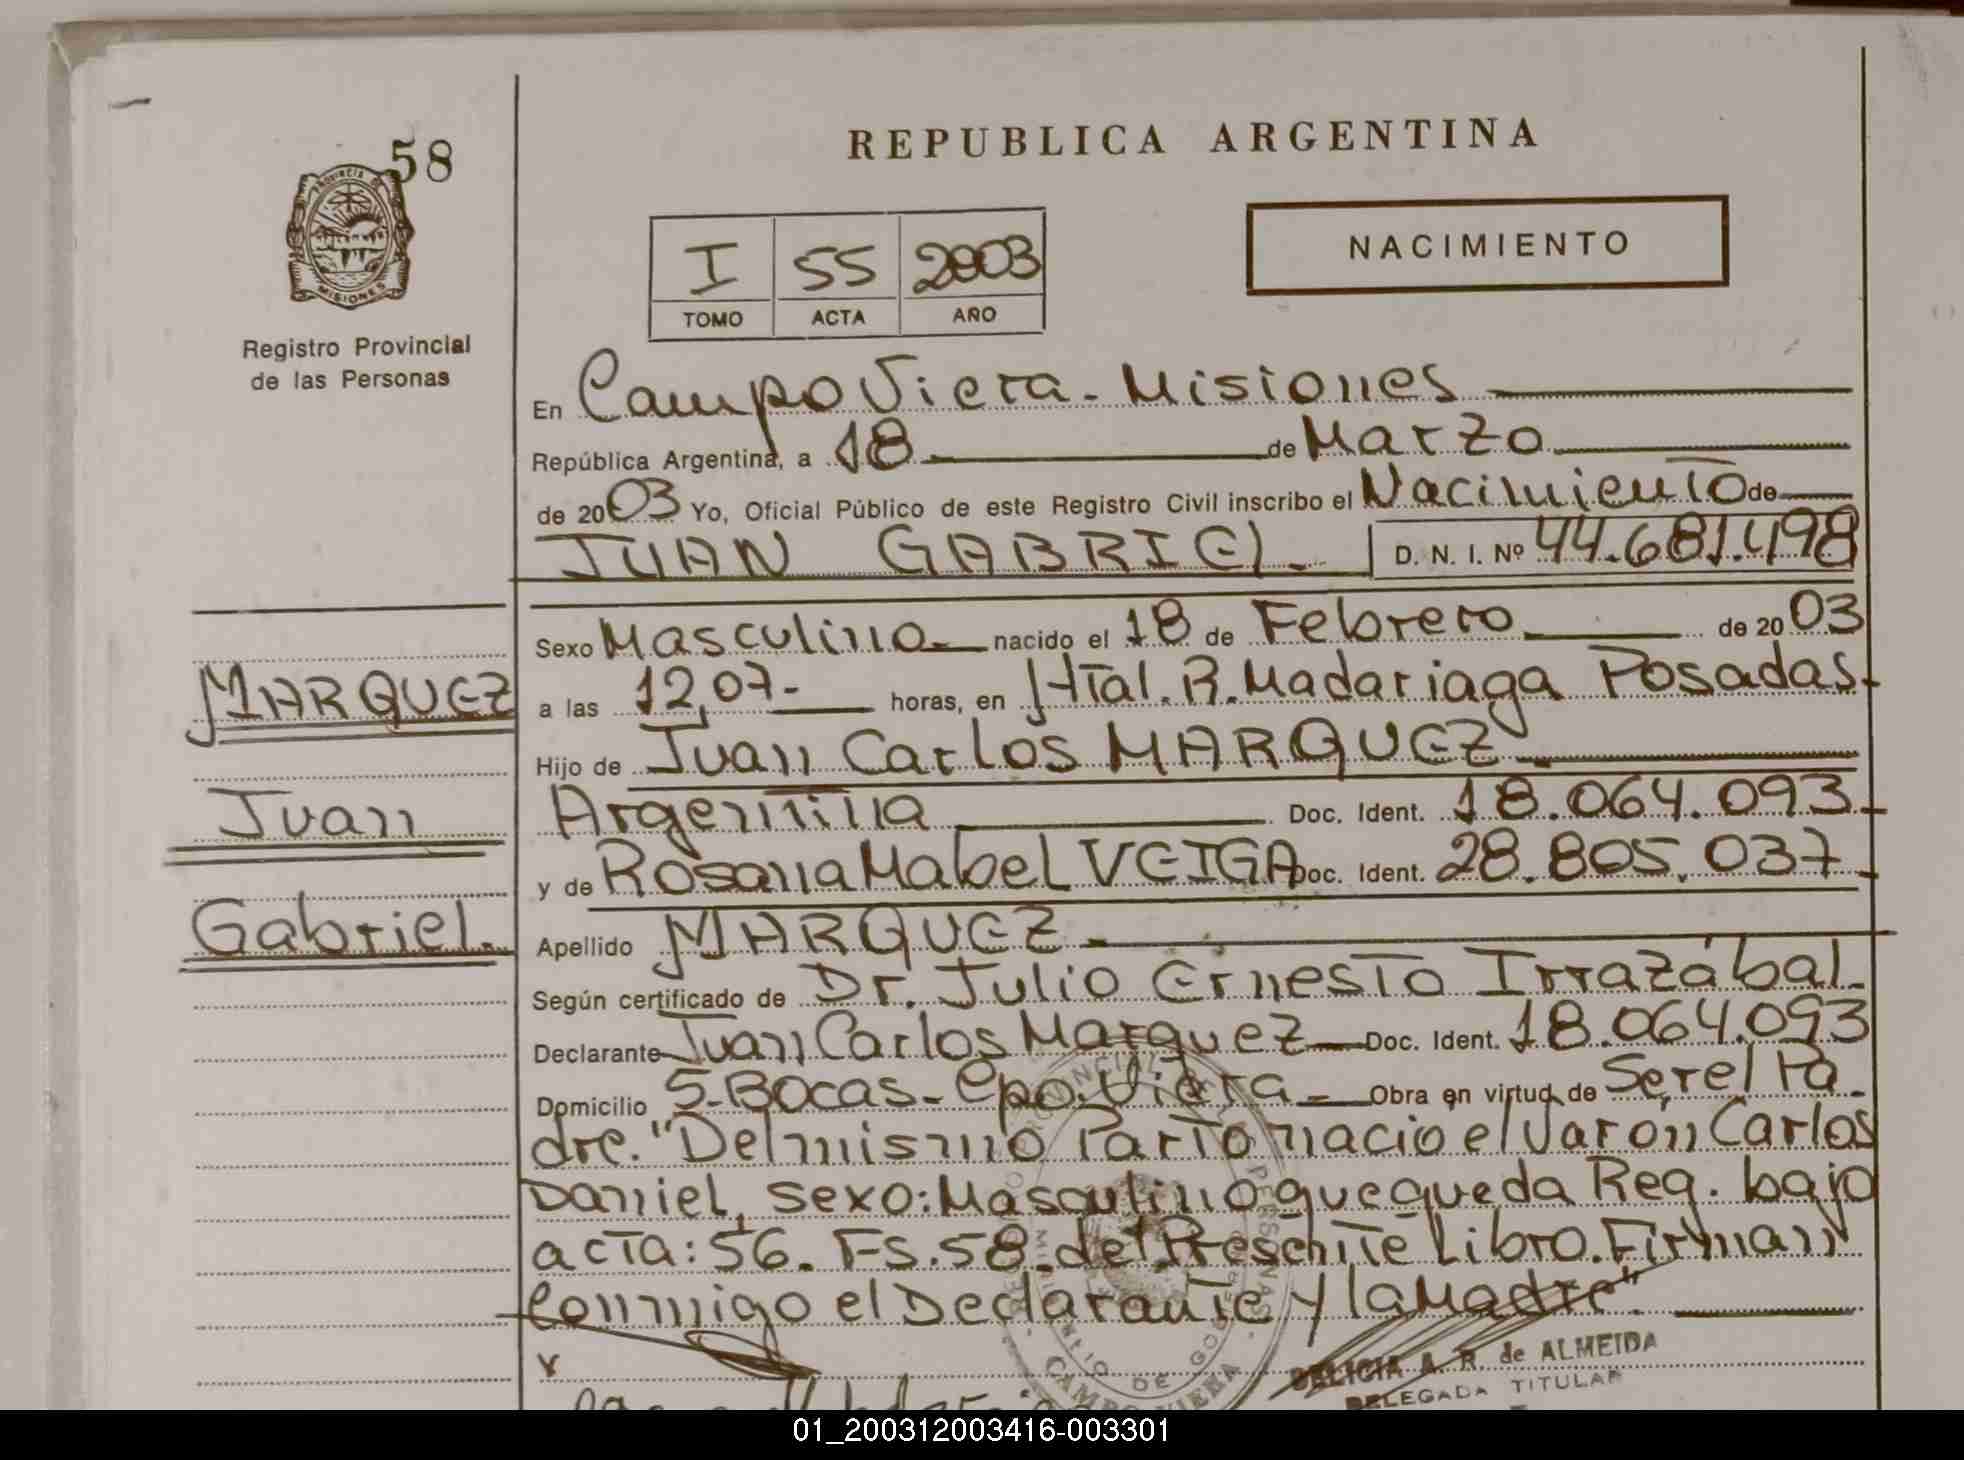 58
PROVINCIA DE
MISIONES
Registro Provincial
de las Personas
REPUBLICA ARGENTINA
NACIMIENTO
I 55 2003
TOMO ACTA AÑO
En Campo Viera - Misiones
República Argentina, a 18 de Marzo
de 2003 Yo, Oficial Público de este Registro Civil inscribo el Nacimiento de
JUAN GABRIEL. D. N. I. Nº 44.681.498
Sexo Masculino nacido el 18 de Febrero de 2003
a las 12,07- horas, en Htal. R. Madariaga Posadas.
MARQUEZ
Hijo de Juan Carlos MARQUEZ
Argentina Doc. Ident. 18.064.093
Juan
y de Rosana Mabel VEIGA Doc. Ident. 28.805.037
Gabriel.
Apellido MARQUEZ
Según certificado de Dr. Julio Ernesto Irrazábal.
Declarante Juan Carlos Marquez Doc. Ident. 18.064.093
Domicilio 5-Bocas- Cpo. Viera Obra en virtud de Ser el Pa
dre. "Del mismo Parto nacio el Varon Carlos
Daniel, sexo: Masculino que queda Reg. bajo
acta: 56. Fs. 58. del Presente Libro. Firman
Conmigo el Declarante y la Madre".
CAMPO VIERA
DELICIA A. R. de ALMEIDA
DELEGADA TITULAR
01_200312003416-003301